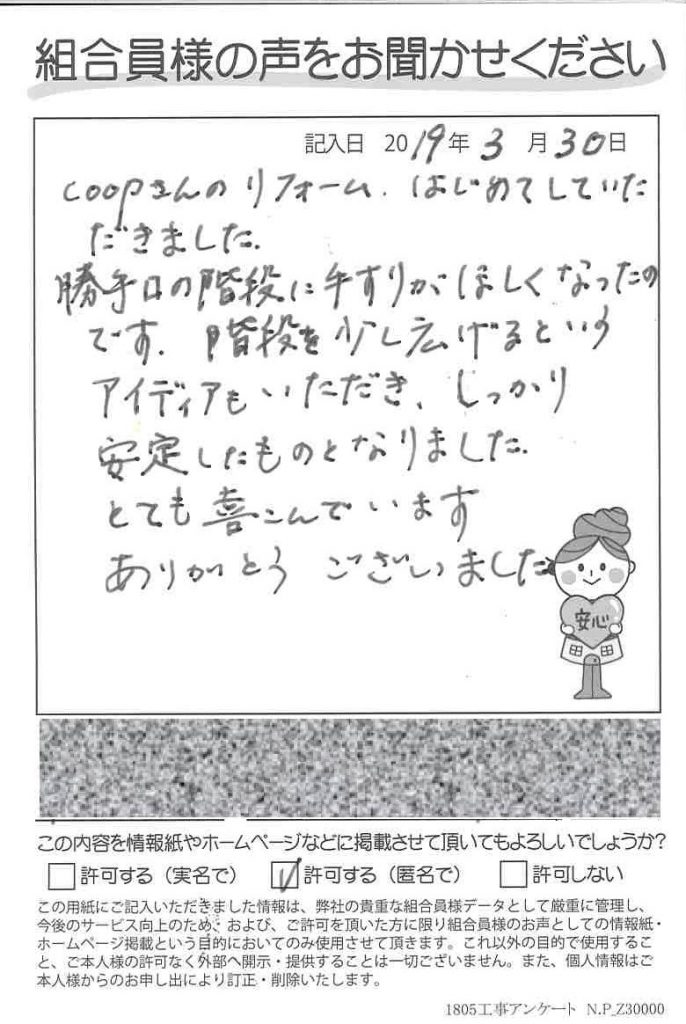 組合員様の声をお聞かせください
記入日 2019年3月30日
coopさんのリフォーム.はじめてしていた
だきました.
勝手口の階段に手すりがほしくなったの
です.階段を少し広げるという
アイディアもいただき、しっかり
安定したものとなりました.
とても喜こんでいます
ありがとうございました
安心
この内容を情報紙やホームページなどに掲載させて頂いてもよろしいでしょうか?
許可する（実名で） 許可する（匿名で） 許可しない
この用紙にご記入いただきました情報は、弊社の貴重な組合員様データとして厳重に管理し、
今後のサービス向上のため、および、ご許可を頂いた方に限り組合員様のお声としての情報紙・
ホームページ掲載という目的においてのみ使用させて頂きます。これ以外の目的で使用するこ
と、ご本人様の許可なく外部へ開示・提供することは一切ございません。また、個人情報はご
本人様からのお申し出により訂正・削除いたします。
1805工事アンケート N.P_Z30000